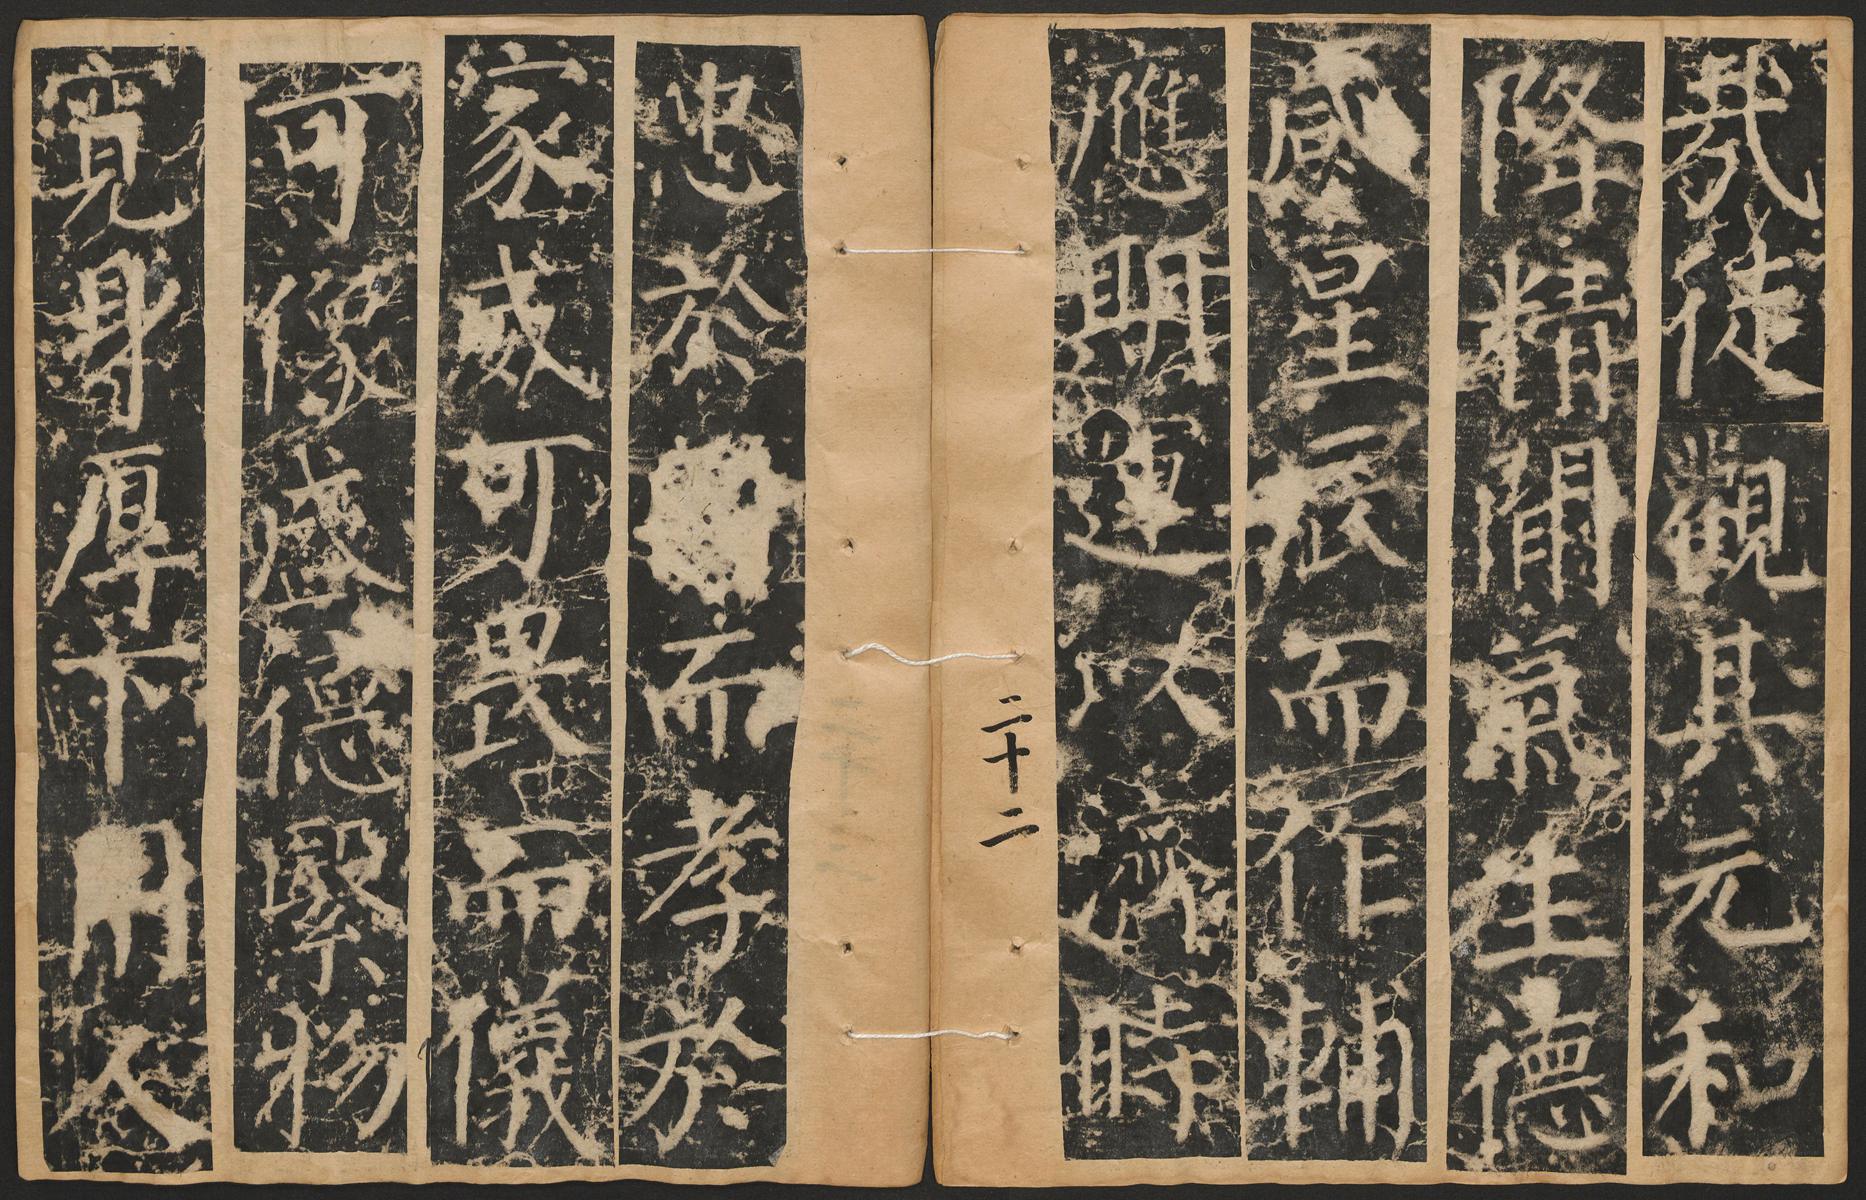 哉徒觀其元和
降精閒氣生德
感星辰而作輔
應期運以濟時
二十二
忠於而孝於
家威可畏而儀
可像盛德緊物
寬身厚下用人